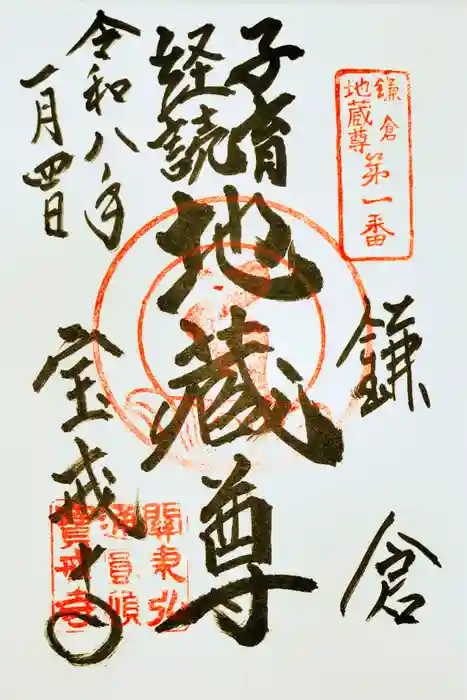 鎌倉
地蔵尊
第一番
鎌倉
子育
経読
地蔵尊
令和八年
一月四日
宝戒寺